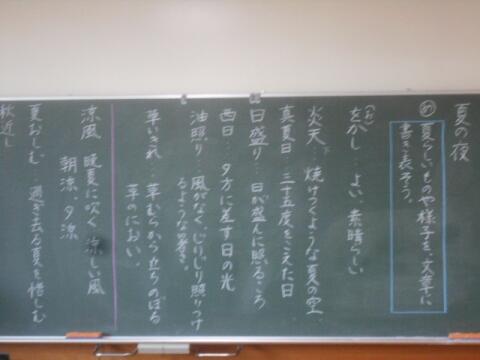 夏の夜
め 夏らしいものや様子を、文章に
書き表そう。
(お)
をかし…よい、素晴らしい
炎天…焼けつくような夏の空
真夏日…三十五度をこえた日
日盛り…日が盛んに照るころ
西日…夕方に差す日の光
油照り…風がなく、じりじり照りつけ
るような暑さ。
草いきれ…草むらから立ちのぼる
草のにおい。
涼風 晩夏に吹く涼しい風
朝涼、夕涼
夏おしむ…過ぎ去る夏を惜しむ
秋近し